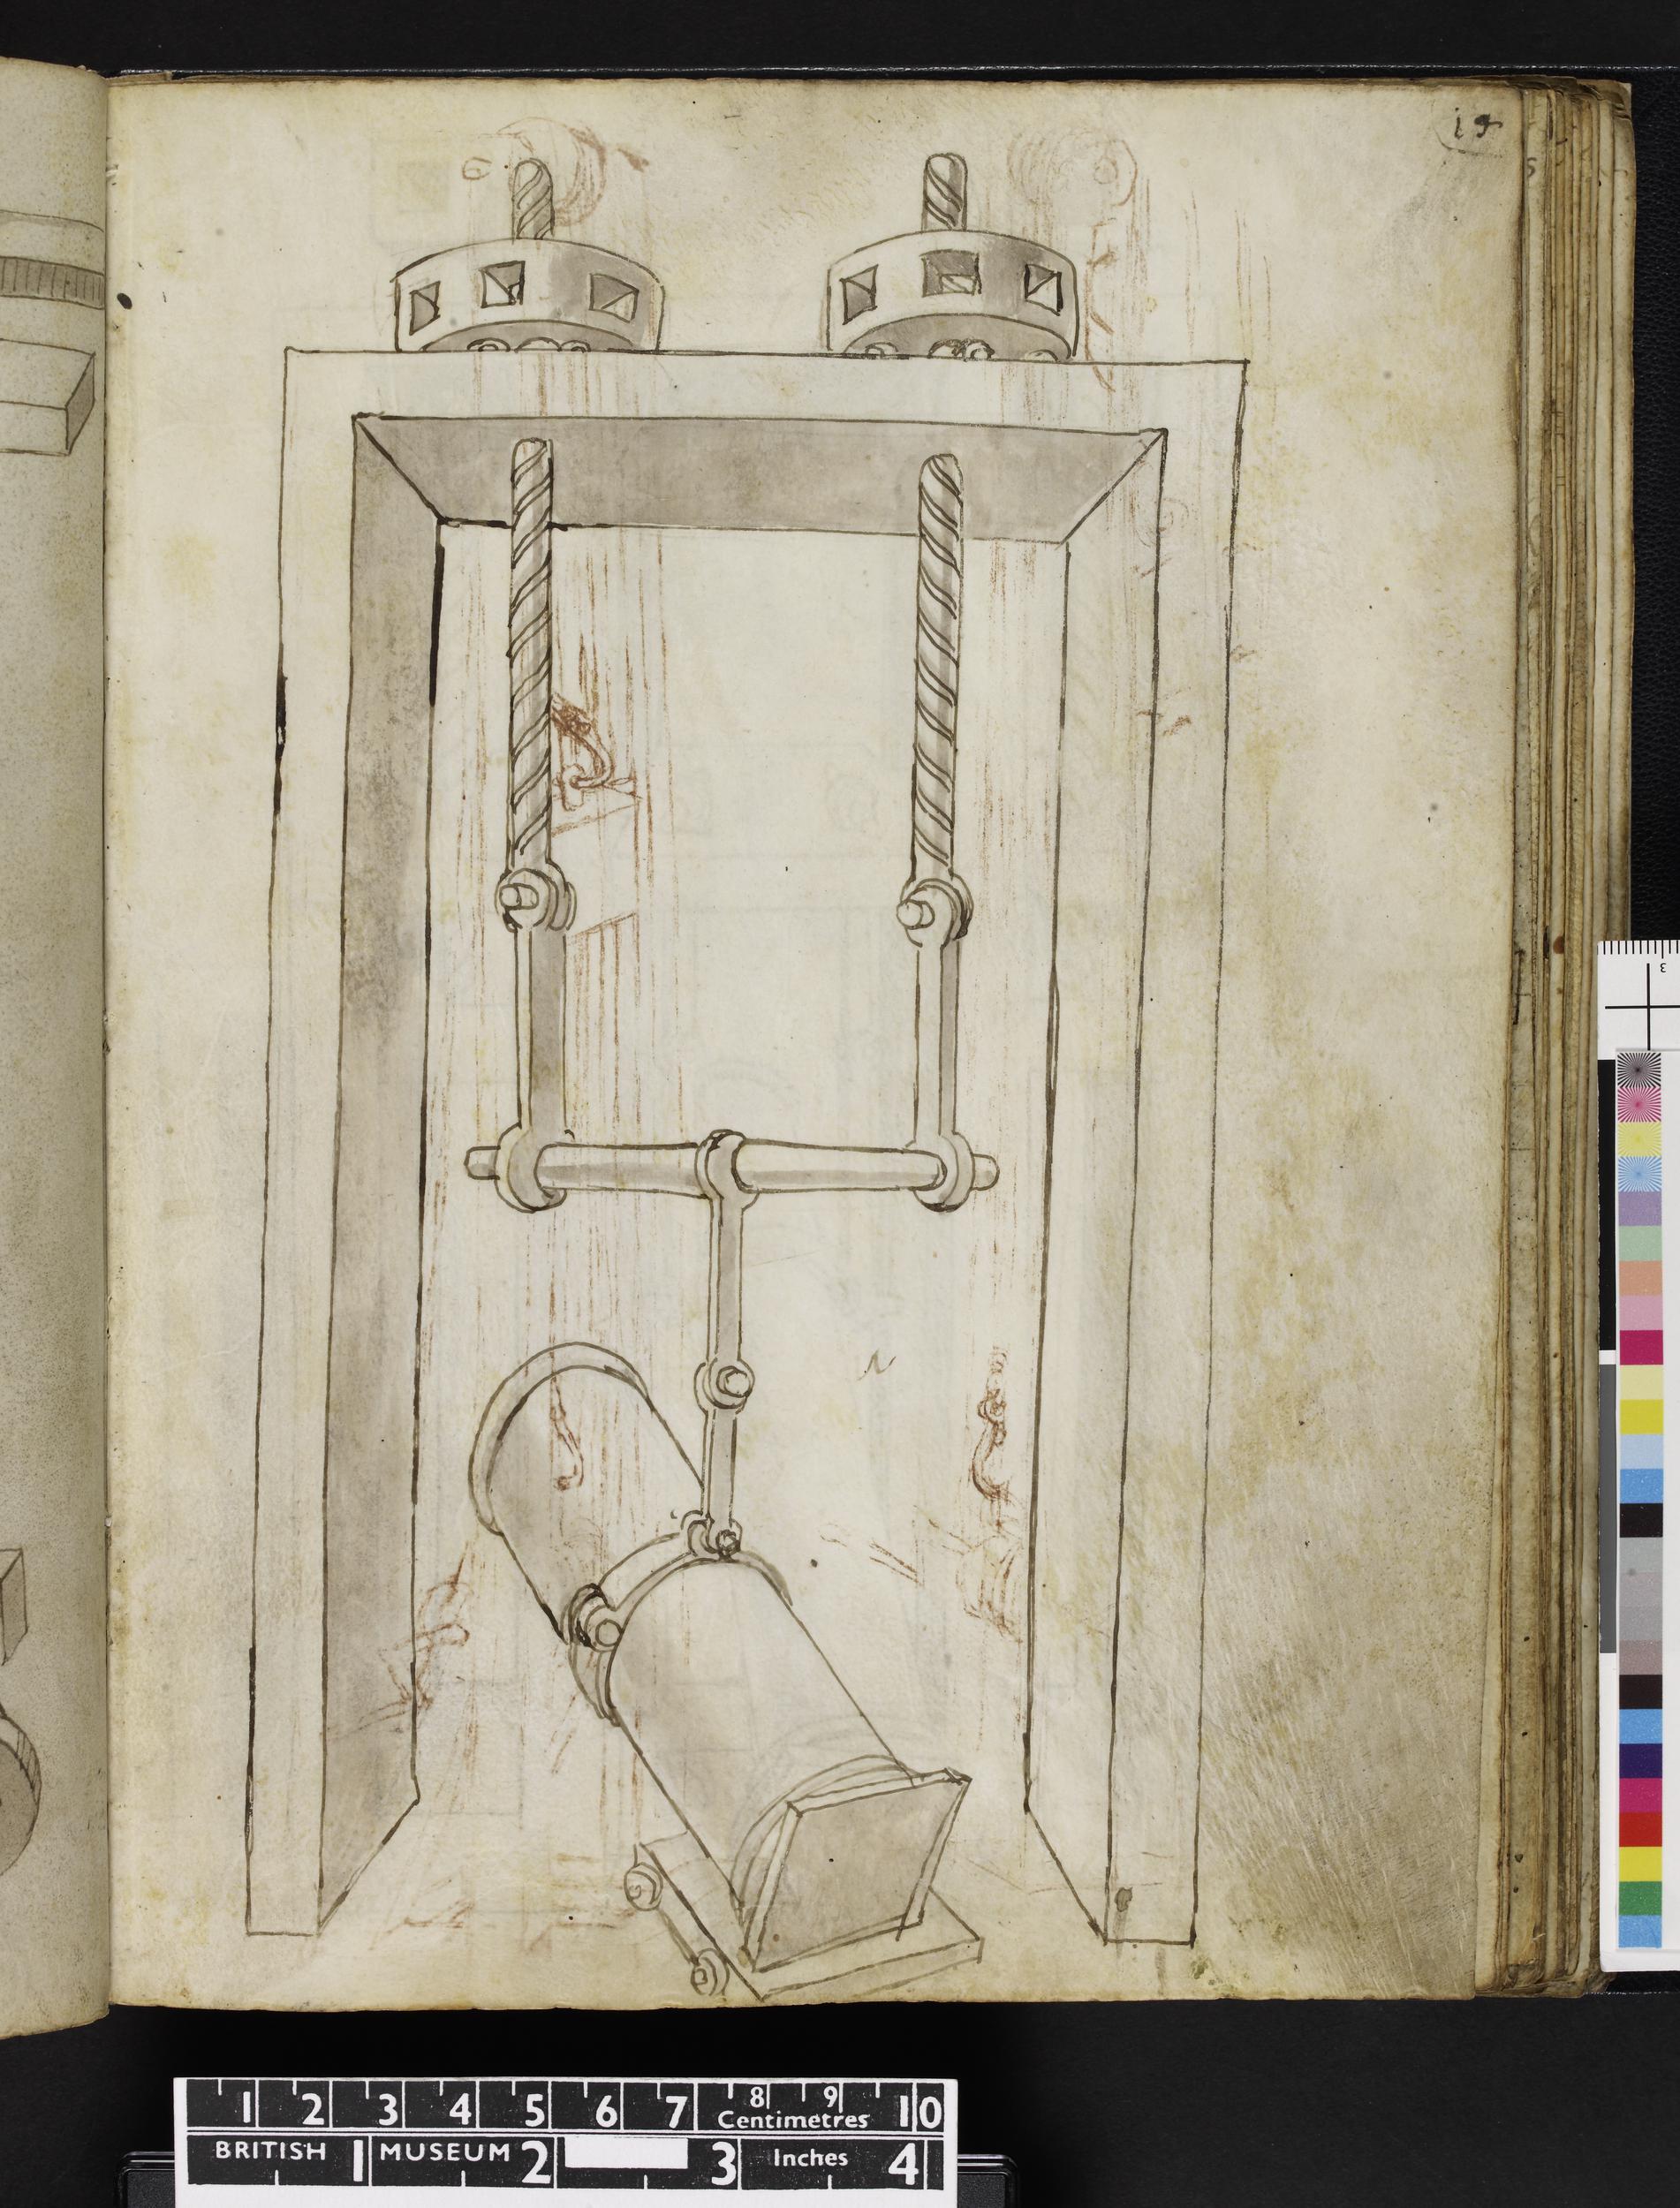 19
1 2 3 4 5 6 7 8 9 10
Centimetres
BRITISH 1 MUSEUM 2 3 Inches 4
3